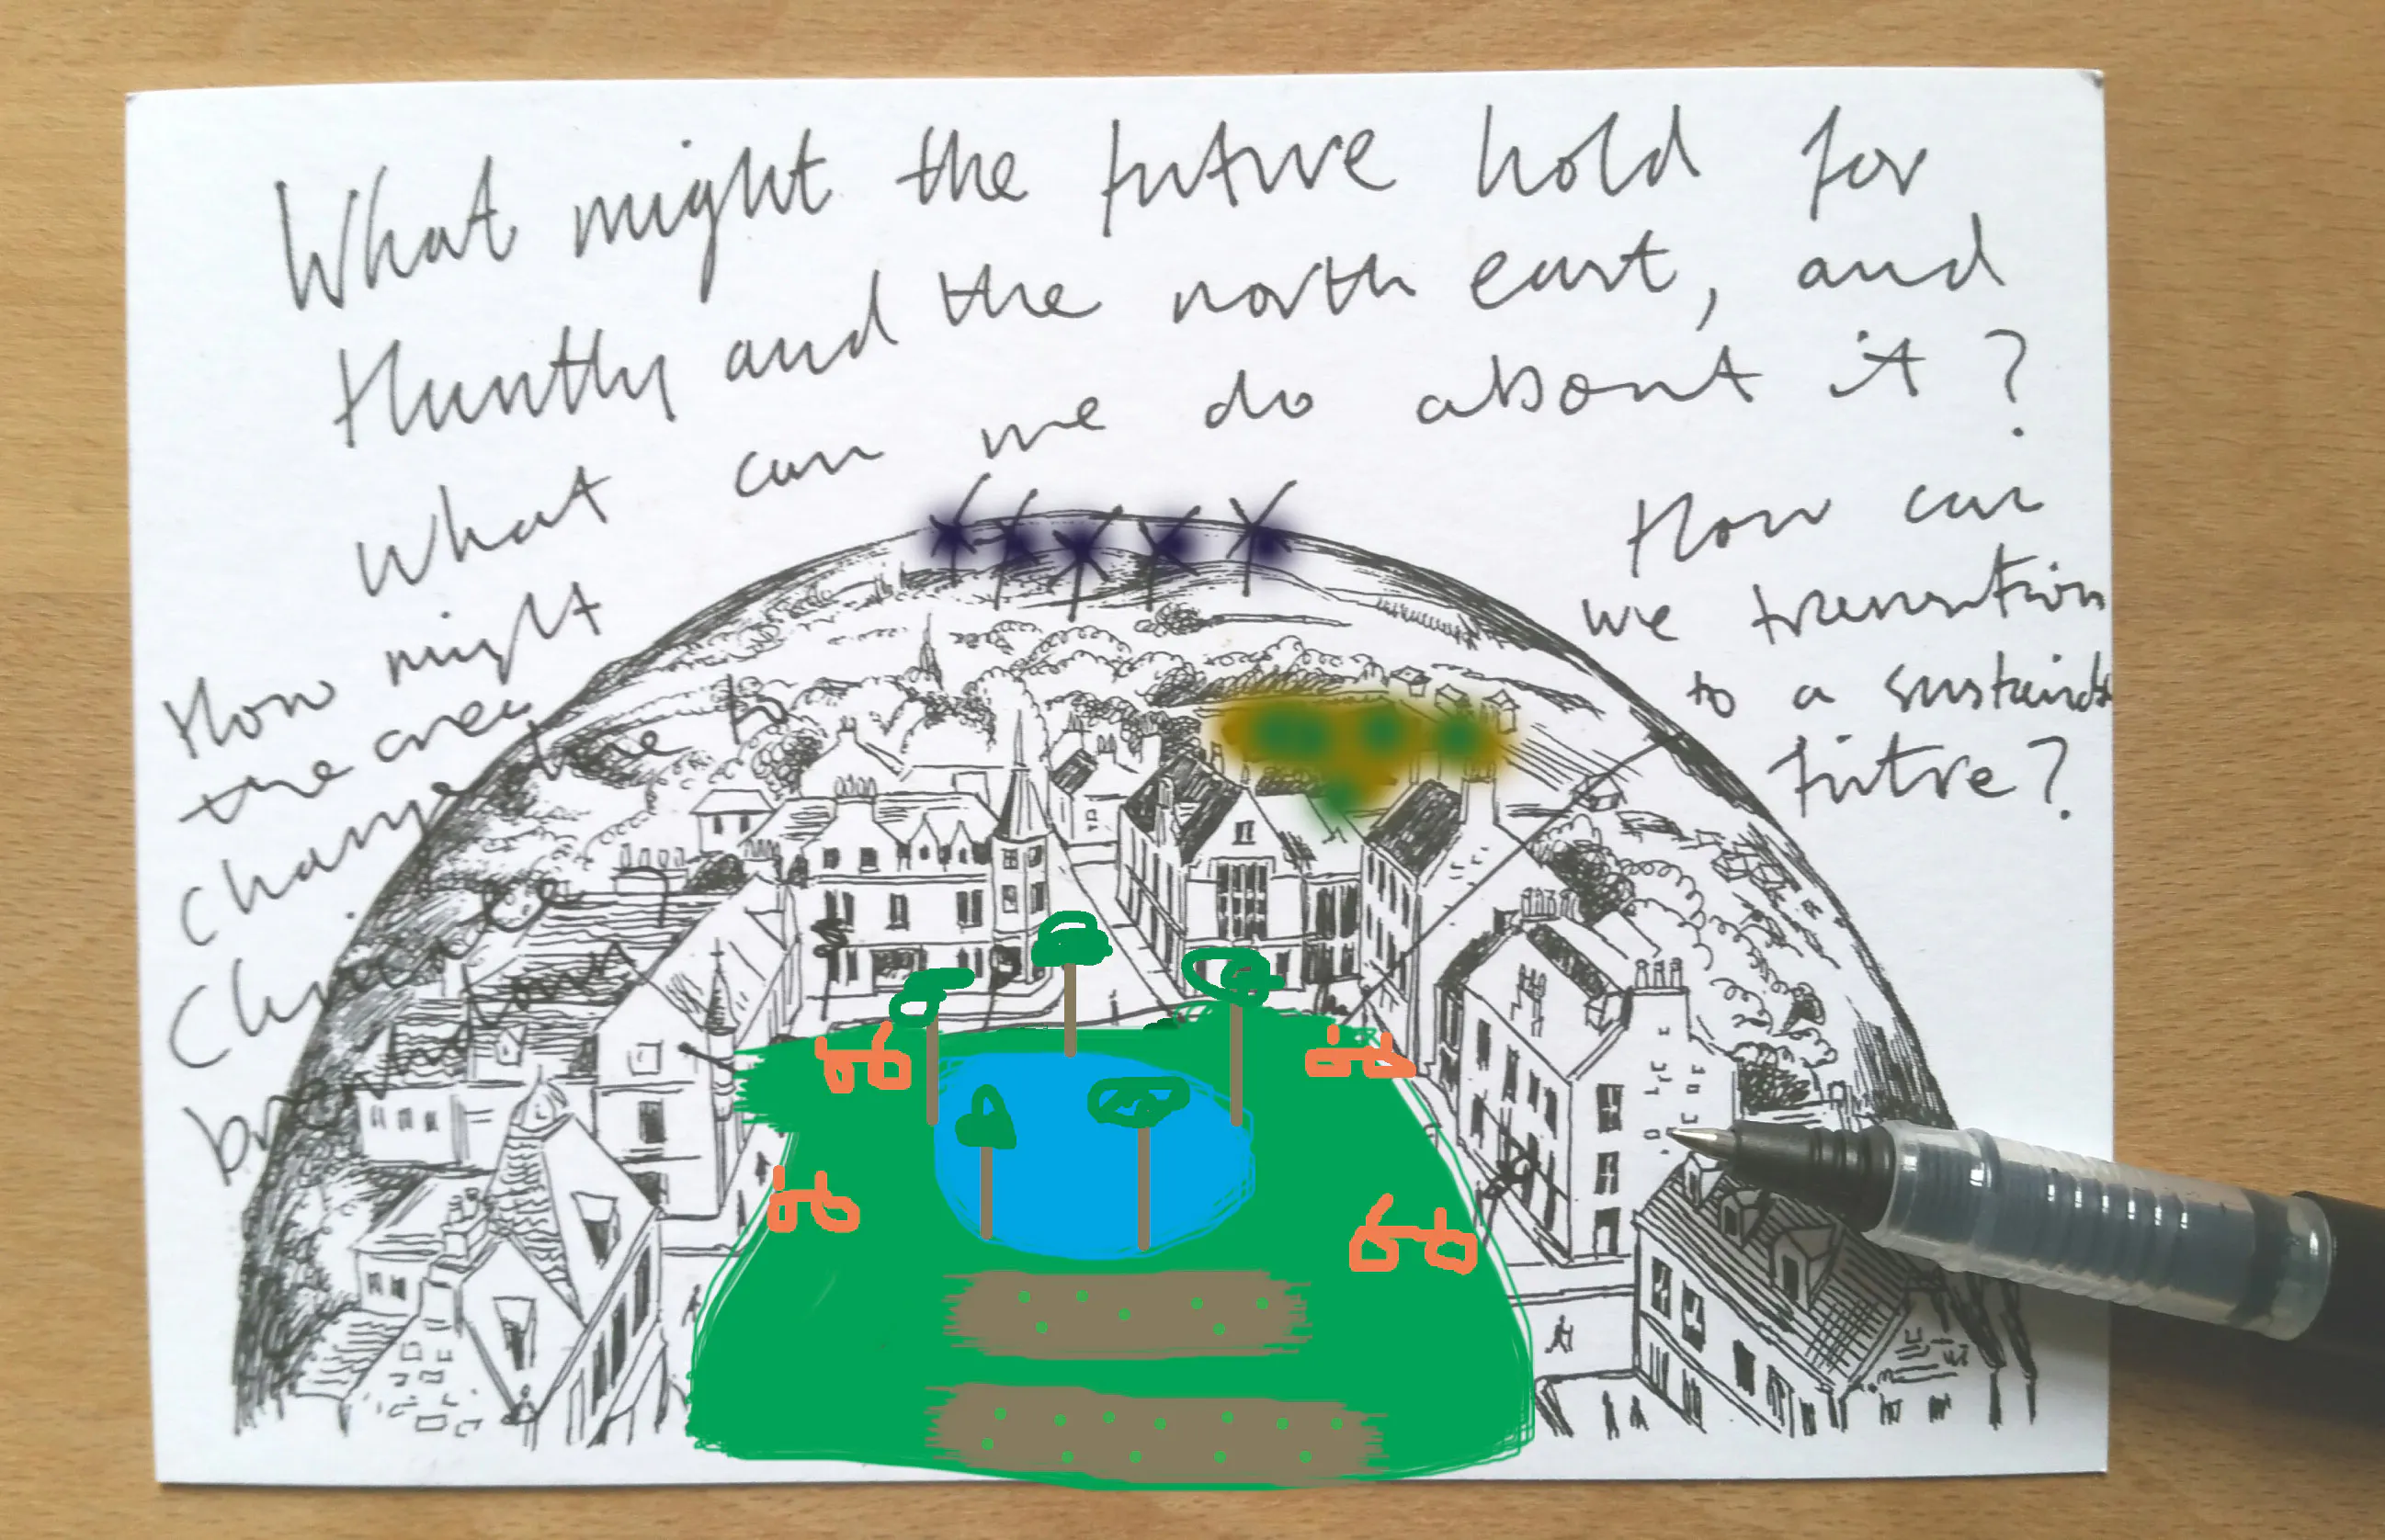 What might the future hold for
Huntly and the north east, and
What can we do about it?
How might
the area
change due to
Climate
breakdown
How can
we transition
to a sustainable
future?